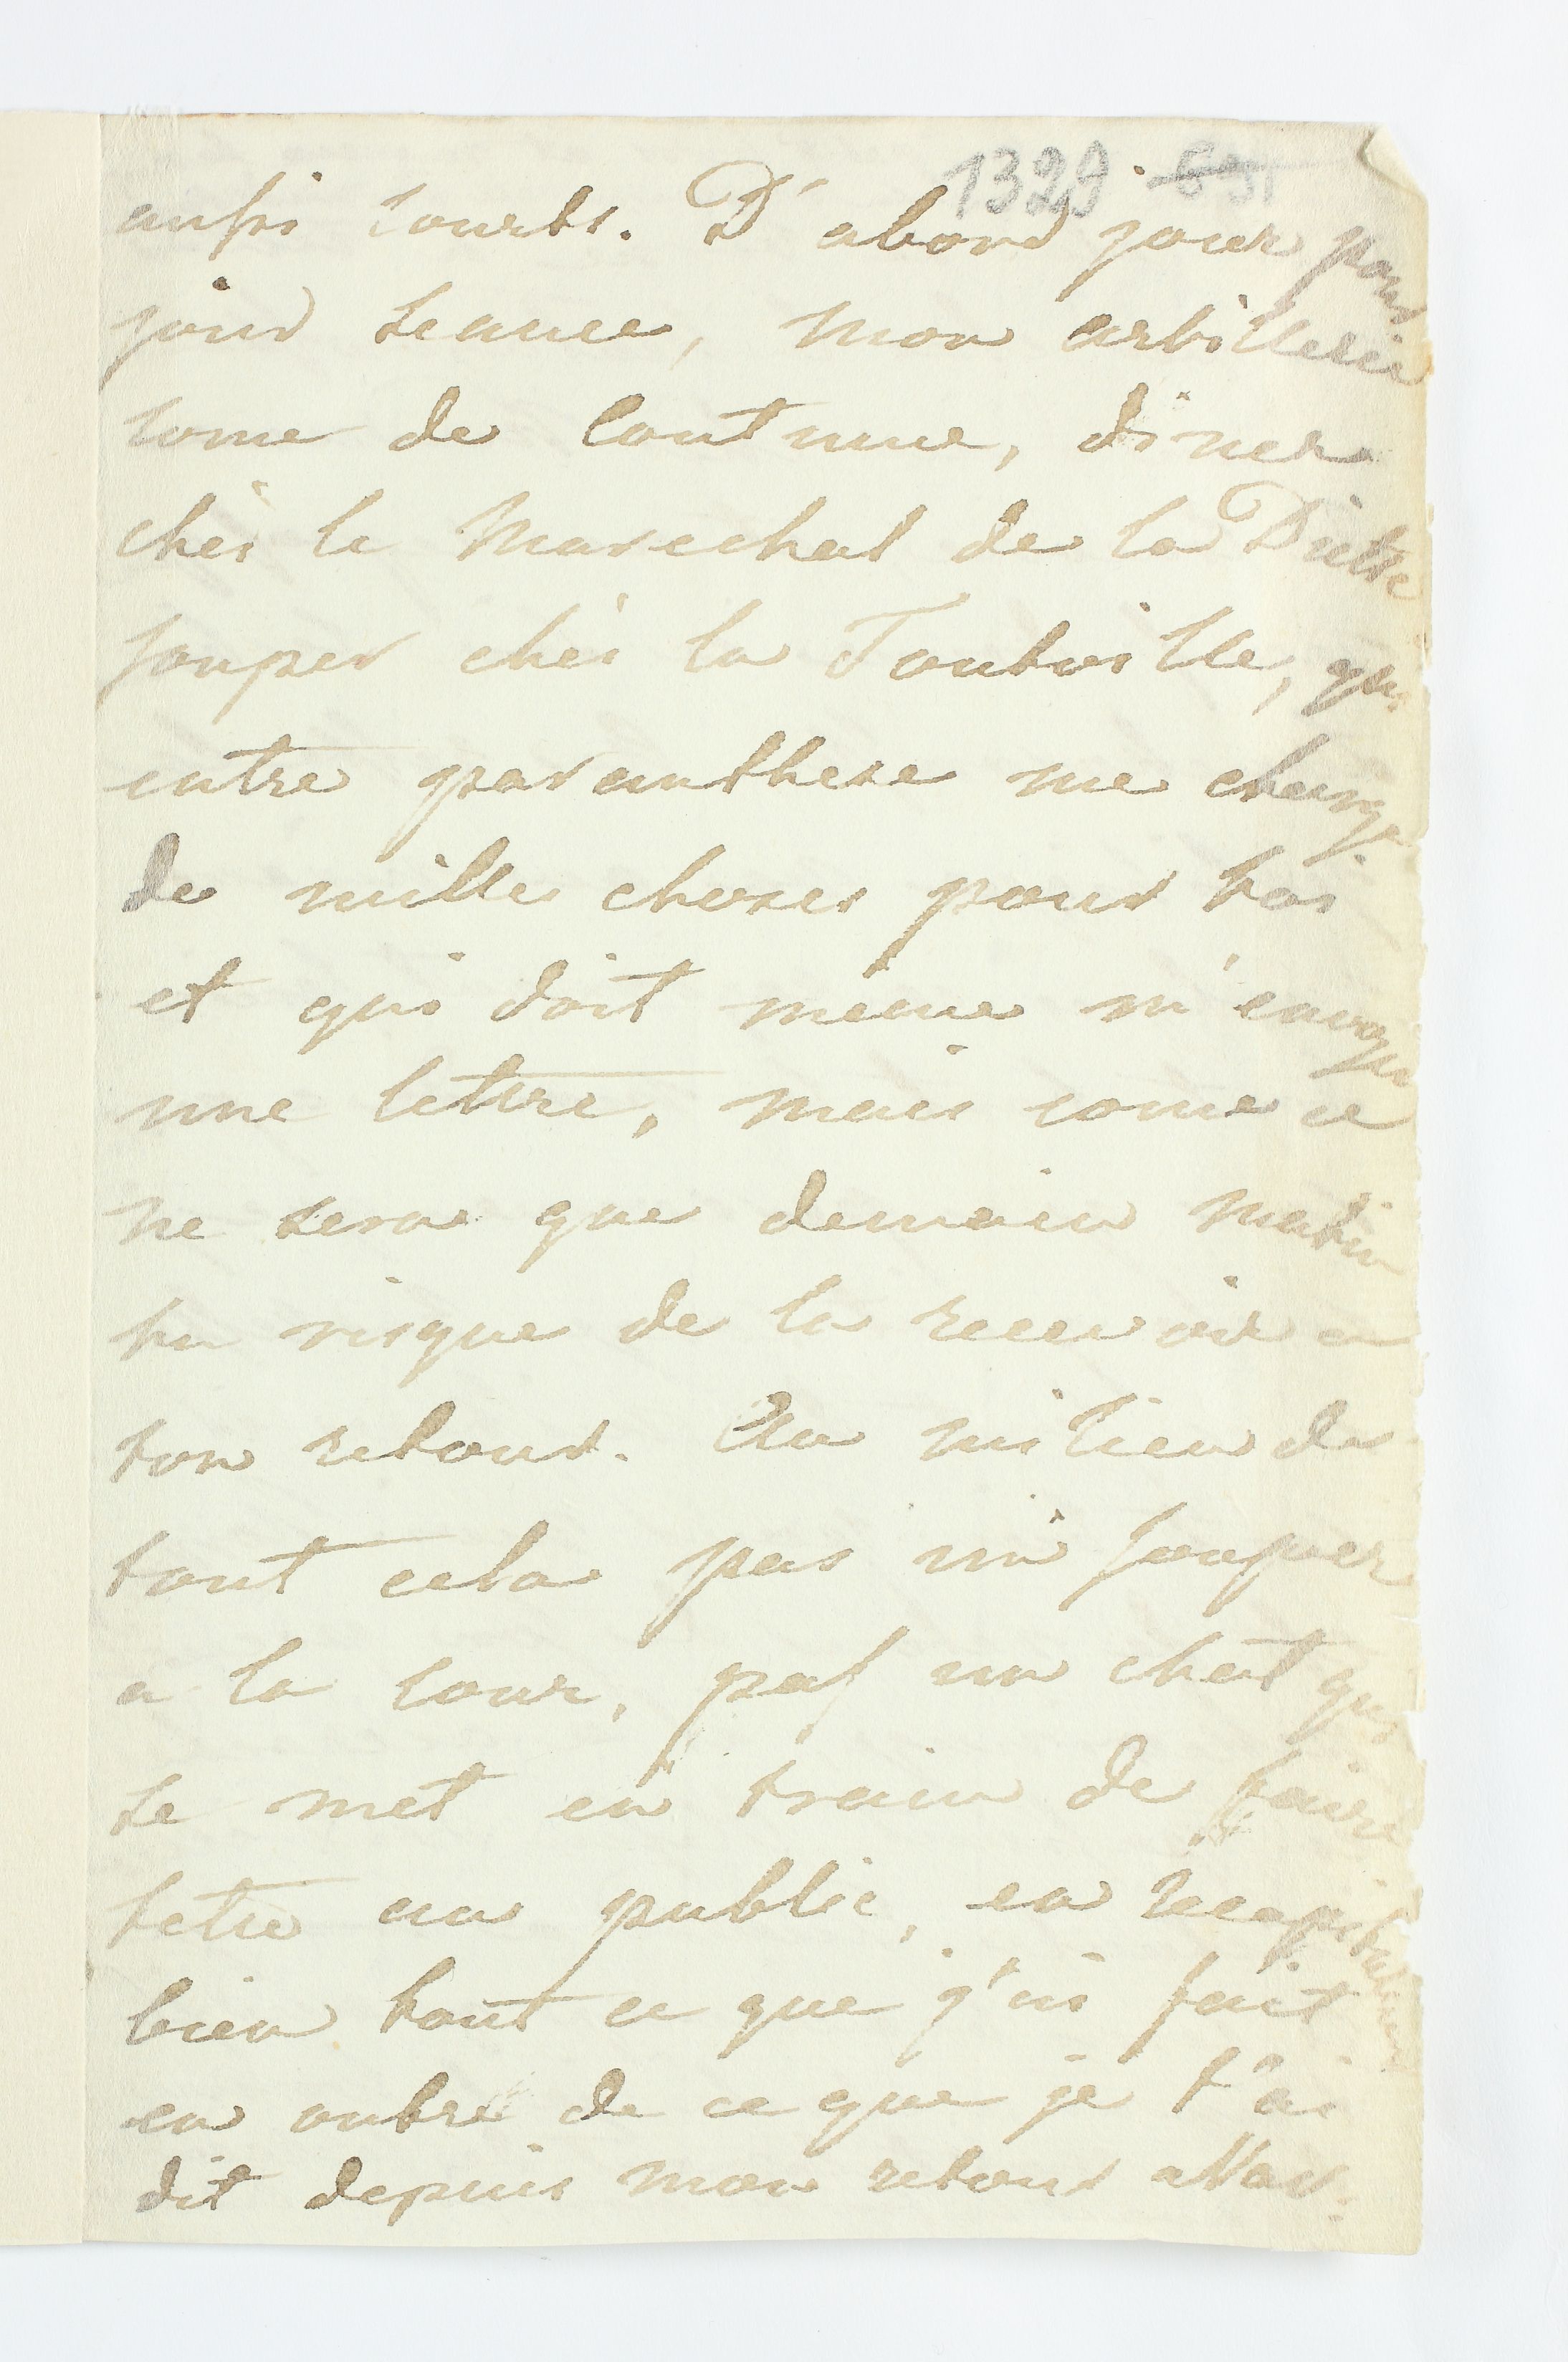 1329
aussi courts. D'abord jour pour
jour seance, mon artillerie
come de coutume, diner
chès le Marechal de la Diette
souper chès la Toutoille, qui
entre paranthese me charge
de milles choses pour toi
et qui doit meme m'envoyer
une lettre, mais come ce
ne sera que demain matin
tu risque de la recevoir a
ton retour. Au milieu de
tout cela pas un souper
a la cour, paf un chat qui
se met en train de faire
tetre au public, en recapitulant
bien tout ce que j'ai fait
en outre de ce que je t'ai
dit depuis mon retour a Var: